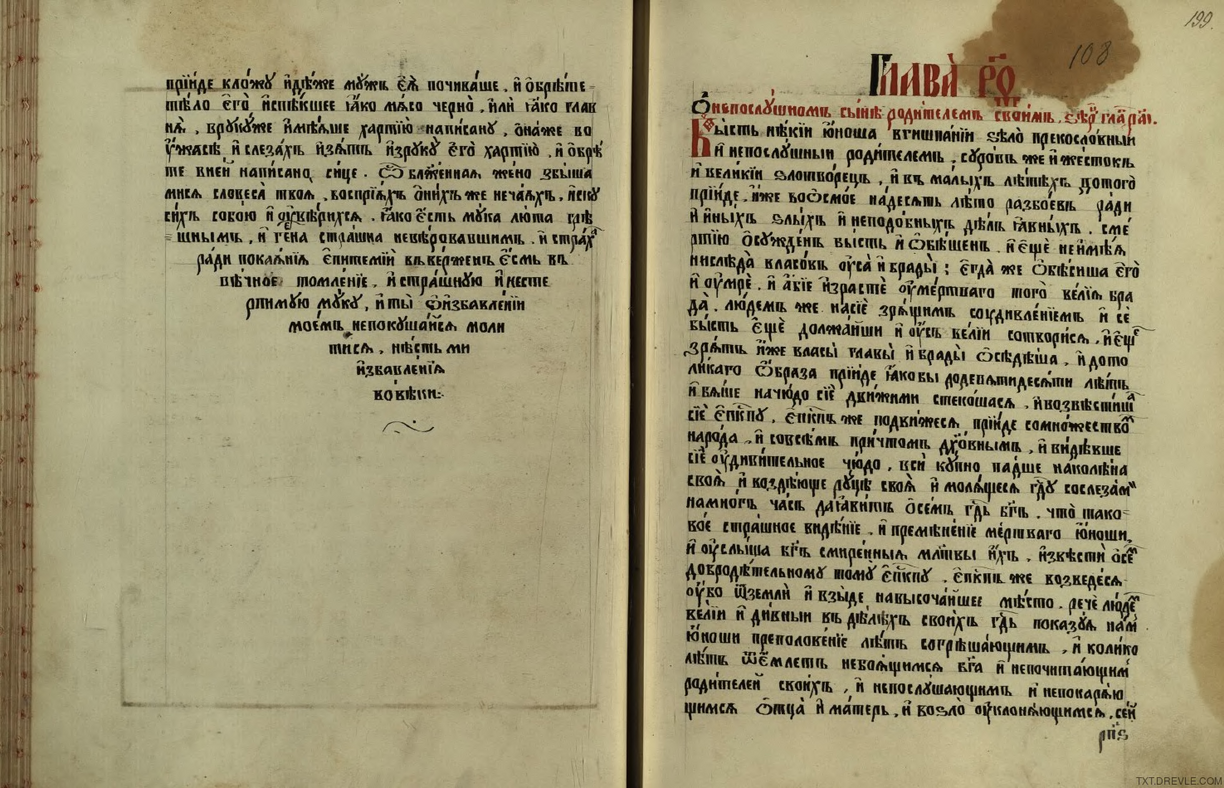 прїиде кло́жꙋ и҆дѣ́же мꙋ́жъ є҆ѧ̀ почива́ше . и҆ ѻ҆брѣ́те
тѣ́ло є҆гѡ̀ и҆спе́кшее ꙗ҆́ко мѧ́со че́рно , и҆лѝ ꙗ҆́ко глав
нѧ̀ , врꙋкꙋ́же и҆мѣ́ѧше ха́ртїю напи́санꙋ , ѻ҆на́же во
ᲂу҆́жасѣ , и҆ слеза́хъ и҆з̾ѧ́тъ и҆зрꙋкꙋ̀ є҆гѡ̀ ха́ртїю , и҆ ѻ҆брѣ́
те вне́й написано , си́це . Ѽ бл҃же́ннаѧ жено̀ збы́ша
мисѧ словеса̀ твоѧ̀ , воспрїѧ́хъ ѻ҆ни́хъ же нечаѧхъ , и҆скꙋ
си́хъ собо́ю и҆ ᲂу҆вѣ́рихсѧ . ꙗ҆́ко є҆́сть мꙋ́ка лю́та грѣ́
шнымъ , и҆ гее́на стра́шна невѣ́ровавшимъ . и҆ стра́х
ра́ди покаѧ́нїѧ є҆питемі́й вве́рженъ є҆́смь въ
вѣ́чное томле́нїе , и҆ стра́шнꙋю и҆ несте
рпи́мꙋю мꙋ́кꙋ , и҆ ты̀ ѽ и҆збавле́нїи
мое́мъ непокꙋша́йсѧ моли
тисѧ , нѣ́сть ми
и҆збавле́нїѧ
во вѣ́ки :
199.
108
Глава̀ ро҃
Ѽ непослꙋ́шномъ сы́нѣ роди́телемъ свои́мъ .
Бы́сть нѣ́кїи ю҆́ноша вгишпа́нїи ѕѣлѡ̀ прекосло́вныи
и҆ непослꙋ́шныи роди́телемъ , сꙋро́въ же и҆ же́стокъ
и҆ вели́кїи ѕлотво́рецъ , и҆ въ ма́лыхъ лѣ́тѣхъ дотогѡ̀
прїи́де , и҆́же воѻсмо́е на́десѧть лѣ́то разбо́евъ ра́ди
и҆ и҆ны́хъ ѕлы́хъ и҆ неподо́бныхъ дѣ́лъ ꙗ҆́вныхъ . сме́
ртїю ѻ҆сꙋжде́нъ бы́сть и҆ ѻ҆бѣ́шенъ . и҆ є҆щѐ неимѣ́ѧ
нислѣда̀ власо́въ ᲂу҆са̀ и҆ брады̀ ; є҆гда́ же ѻ҆бѣ́сиша є҆гѡ̀
и҆ ᲂу҆́мре . и҆ а҆́бїе и҆зрастѐ ᲂу҆ме́ртваго того̀ ве́лїѧ бра
да̀ . лю́демъ же на сїѐ зрѧ́щимъ соᲂудивле́нїемъ и҆ се
бы́сть є҆щѐ должа́йши и҆ ᲂу҆́съ ве́лїи сотвори́сѧ . и҆ є҆щ
зрѧ́тъ и҆́же власы̀ главы̀ и҆ брады̀ ѻ҆сѣдѣ́ша , и҆ дото
ли́каго ѻ҆́браза прїи́де ꙗ҆́ко бы додевѧти́десѧти лѣ́тъ
и҆ бѧ́ше начю́до сїѐ дви́жими стеко́шасѧ , и҆ возвѣсти́ша
сїѐ є҆пⷭ҇кпꙋ . є҆пⷭ҇кпъ же подви́жесѧ , прїи́де сомно́жество
наро́да , и҆ совсѣ́мъ при́чтомъ дх҃о́внымъ , и҆ ви́дѣвше
сїѐ ᲂу҆диви́тельное чю́до , всѝ кꙋ́пно па́дше наколѣ́на
своѧ̀ и҆ воздѣ́юще рꙋ́цѣ своѧ̀ и҆ молѧ́щесѧ гдⷭ҇ꙋ сослеза́м
намно́гъ ча́съ да ꙗ҆ви́тъ ѻ҆се́мъ гдⷭ҇ь бг҃ъ . что̀ тако
во́е стра́шное ви́дѣнїе , и҆ премѣне́нїе ме́ртваго ю҆́ноши .
и҆ ᲂу҆слы́ша бг҃ъ смире́нныѧ мл҃твы и҆́хъ , и҆звѣстѝ ѻ҆се
доброде́тельномꙋ томꙋ̀ є҆пⷭ҇кпꙋ . є҆пⷭ҇кпъ же возведе́сѧ
ᲂу҆́бо ѿ землѝ и҆ взы́де навысоча́йшее мѣ́сто . речѐ лю́де
ве́лїи и҆ ди́вныи въ дѣ́лѣхъ свои́хъ гдⷭ҇ь показꙋ́ѧ на́м
ю҆́ноши преполове́нїе лѣ́тъ согрѣша́ющимъ , и҆ коли́ко
лѣ́тъ ѿе́млетъ небоѧ́щимсѧ бг҃а и҆ непочита́ющим
роди́телей свои́хъ , и҆ непослꙋ́шающимъ и҆ непокарѧ́ю
щимсѧ ѻ҆тца̀ и҆ ма́терь , и҆ возло̀ ᲂу҆клонѧ́ющимсѧ . се́й
рп҃ѕ
TXT.DREVLE.COM